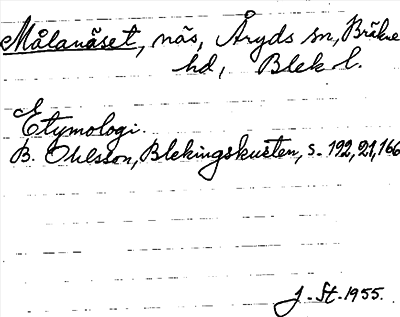 Målanäset, näs, Åryds sn, Bräkne
hd, Blek l.
Etymologi.
B. Ohlsson, Blekingskusten, s. 192, 21, 166
J. St. 1955.